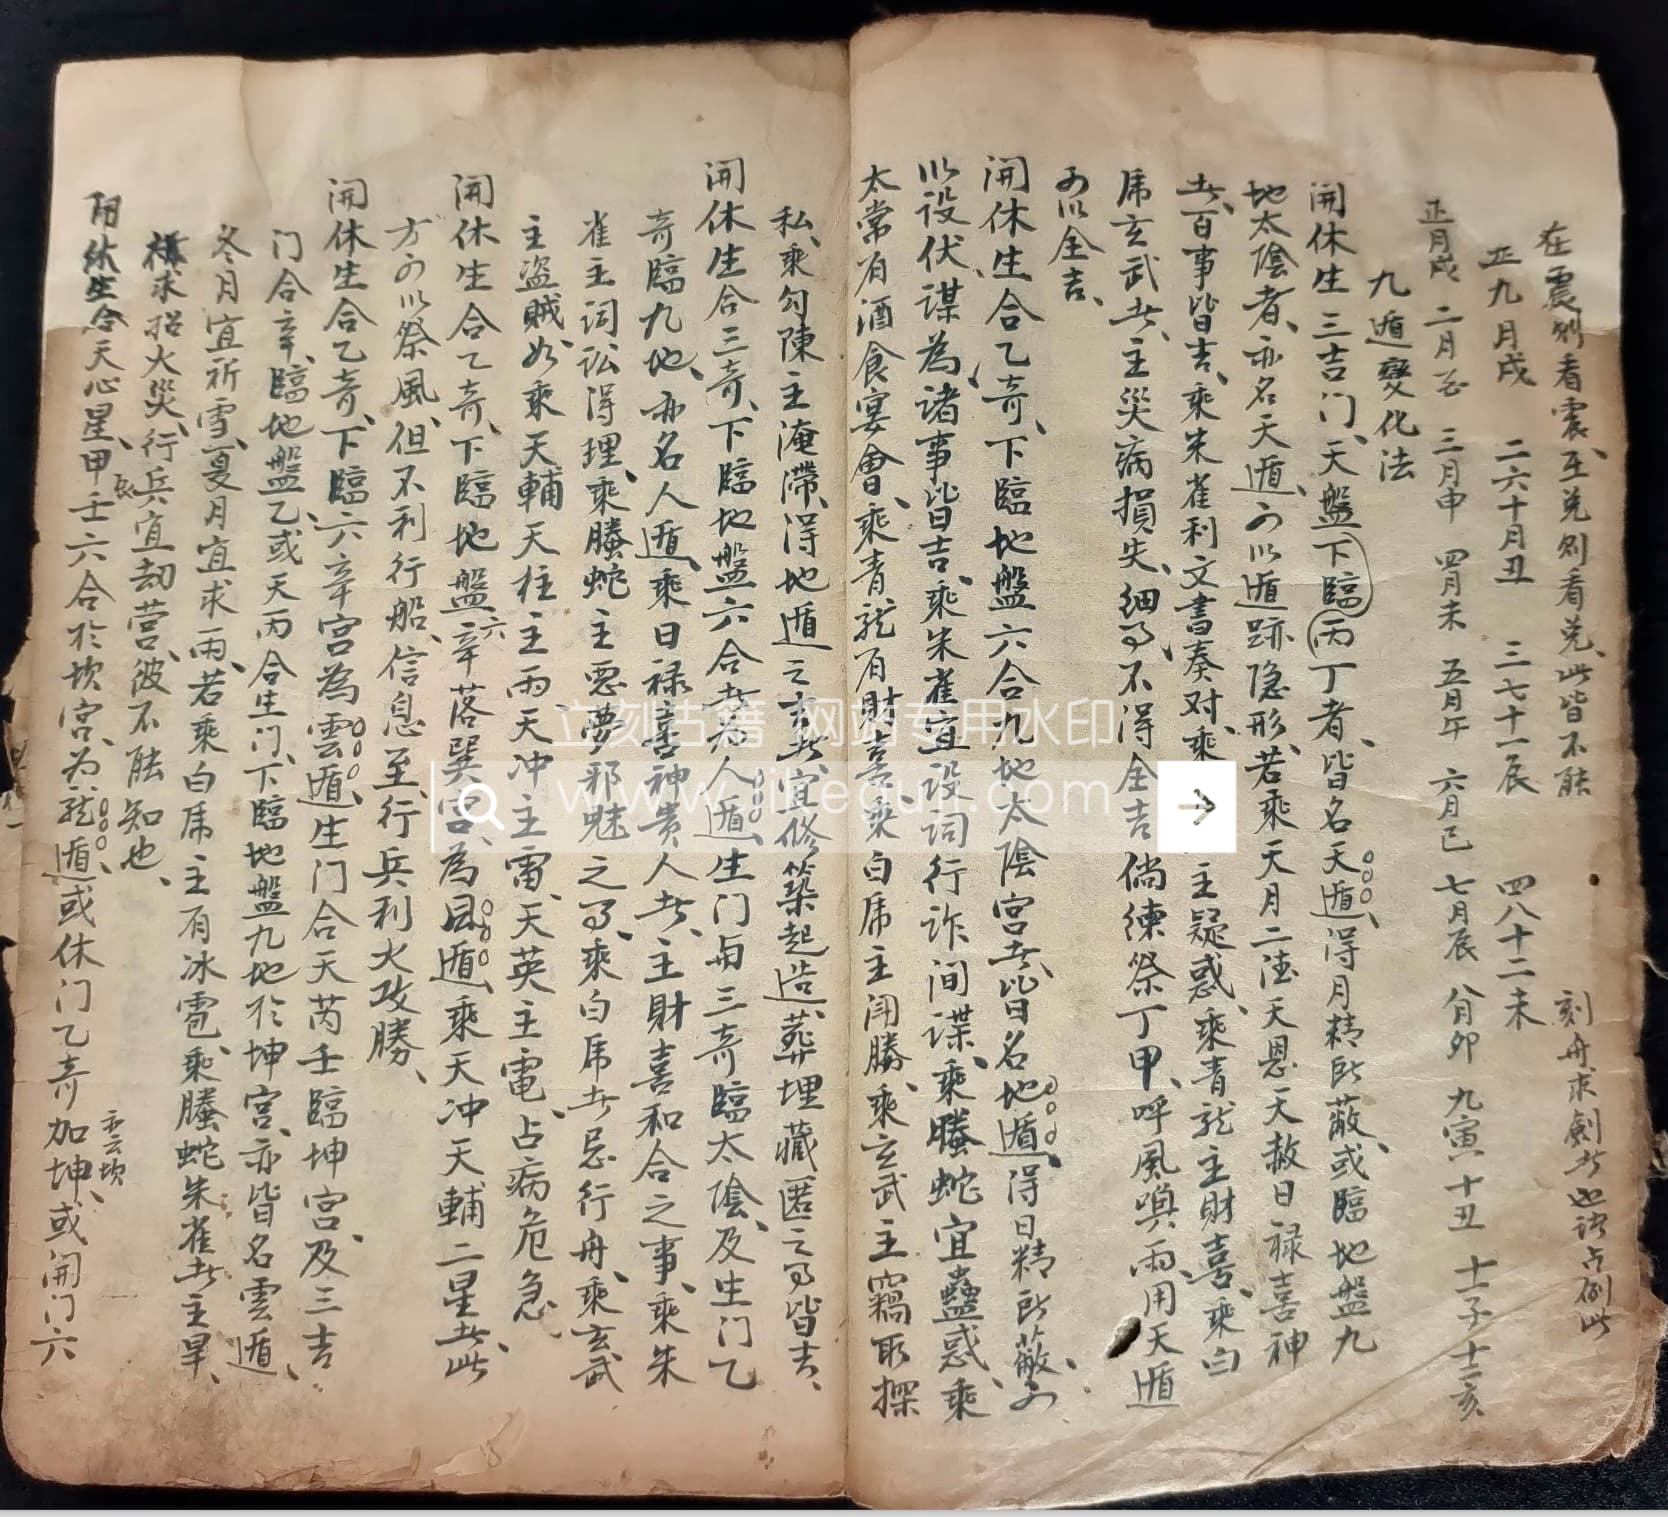 在震则看震、在兑则看兑、此皆不能
刻舟求劍者也 占例此
正九月戌 二六十月丑 三七十一辰 四八十二未
正月戌 二月 三月申 四月未 五月午 六月巳 七月辰 八月卯 九寅 十丑 十一子 十二亥
九遁變化法
開休生三吉门、天盤下臨丙丁者、皆名天遁、得月精所蔽、或臨地盤九
地太陰者、亦名天遁、可以遁跡隐形、若乘天月二德天恩天赦日禄喜神
者、百事皆吉、乘朱雀利文書奏对、乘 主疑惑、乘青龍主財喜、乘白
虎玄武者、主災病損失、细事不得全吉倘练祭丁甲、呼風喚雨、用天遁
可以全吉、
開休生合乙奇、下臨地盤六合九地太陰宮者、皆名地遁、得日精所蔽、可
以设伏谋為、诸事皆吉、乘朱雀宜设词行诈间谍、乘螣蛇宜蠱惑、乘
太常有酒食宴會、乘青龍有財喜、乘白虎主闭勝、乘玄武主竊取探
私、乘勾陳主淹滯、得地遁之吉者、宜修築起造、葬埋藏匿之事皆吉、
開休生合三奇、下臨地盤六合者为人遁、生门与三奇臨太陰、及生门乙
奇臨九地、亦名人遁、乘日禄喜神贵人者、主財喜和合之事、乘朱
雀主词讼得理、乘螣蛇主惡夢邪魅之事、乘白虎者忌行舟、乘玄武
主盗賊、如乘天輔天柱主雨、天冲主雷、天英主電、占病危急、
開休生合乙奇、下臨地盤六辛落巽宮、為風遁、乘天冲天輔二星者、此
方可以祭風、但不利行船、信息至、行兵利火攻勝、
開休生合乙奇、下臨六辛宮為雲遁、生门合天芮壬臨坤宮、及三吉
门合辛、臨地盤乙或天丙合生门、下臨地盤九地於坤宮、亦皆名雲遁、
冬月宜祈雪、夏月宜求雨、若乘白虎主有冰雹、乘螣蛇朱雀者主旱、
求招火災、行兵宜劫营、彼不能知也、
開休生合天心星、甲辰壬六合於坎宮、为龍遁、或休门乙奇加坤、或開门六
亦云坎